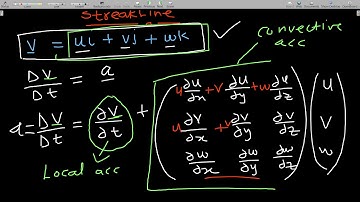 streakline
V = ui + vj + wk ✓
convective
acc
DV/Dt = a
a = DV/Dt = ∂V/∂t + ( u ∂u/∂x + v ∂u/∂y + w ∂u/∂z ) ( u )
u ∂v/∂x + v ∂v/∂y ∂v/∂z v
∂w/∂x ∂w/∂y ∂w/∂z w
Local acc